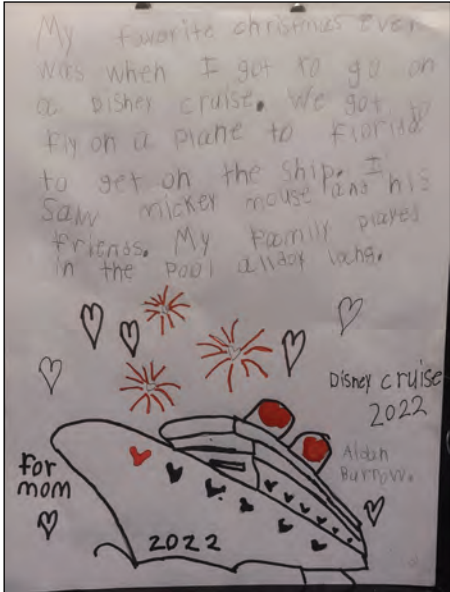 My favorite christmas ever
was when I got to go on
a Disney cruise. We got to
fly on a plane to Florida
to get on the ship. I
saw mickey mouse and his
friends. My family played
in the pool allday long.
Disney cruise
2022
Aldan
Burrow.
for
mom
2022